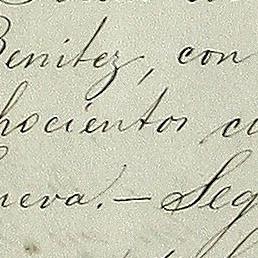 Benitez, con
hocientos cu
ueva. — Seg